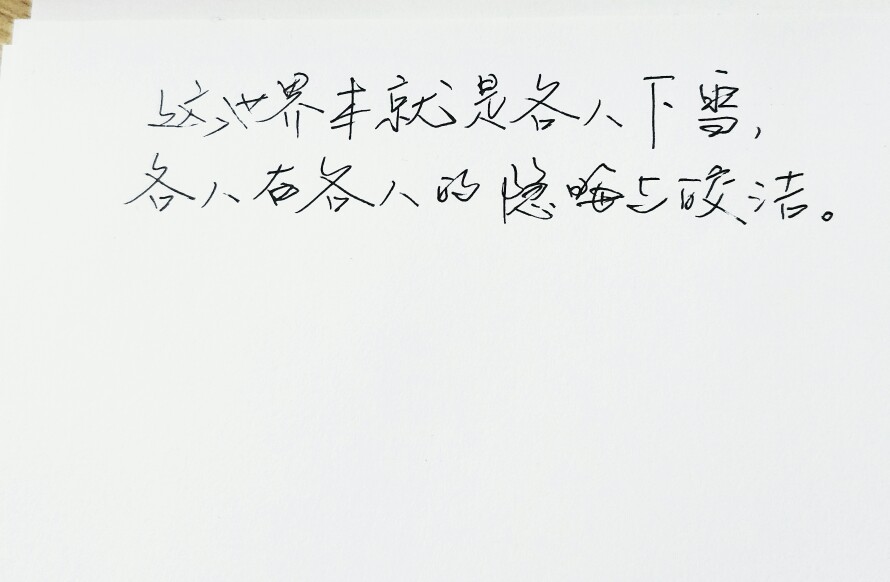 这世界本就是各人下雪,
各人有各人的隐晦与皎洁。